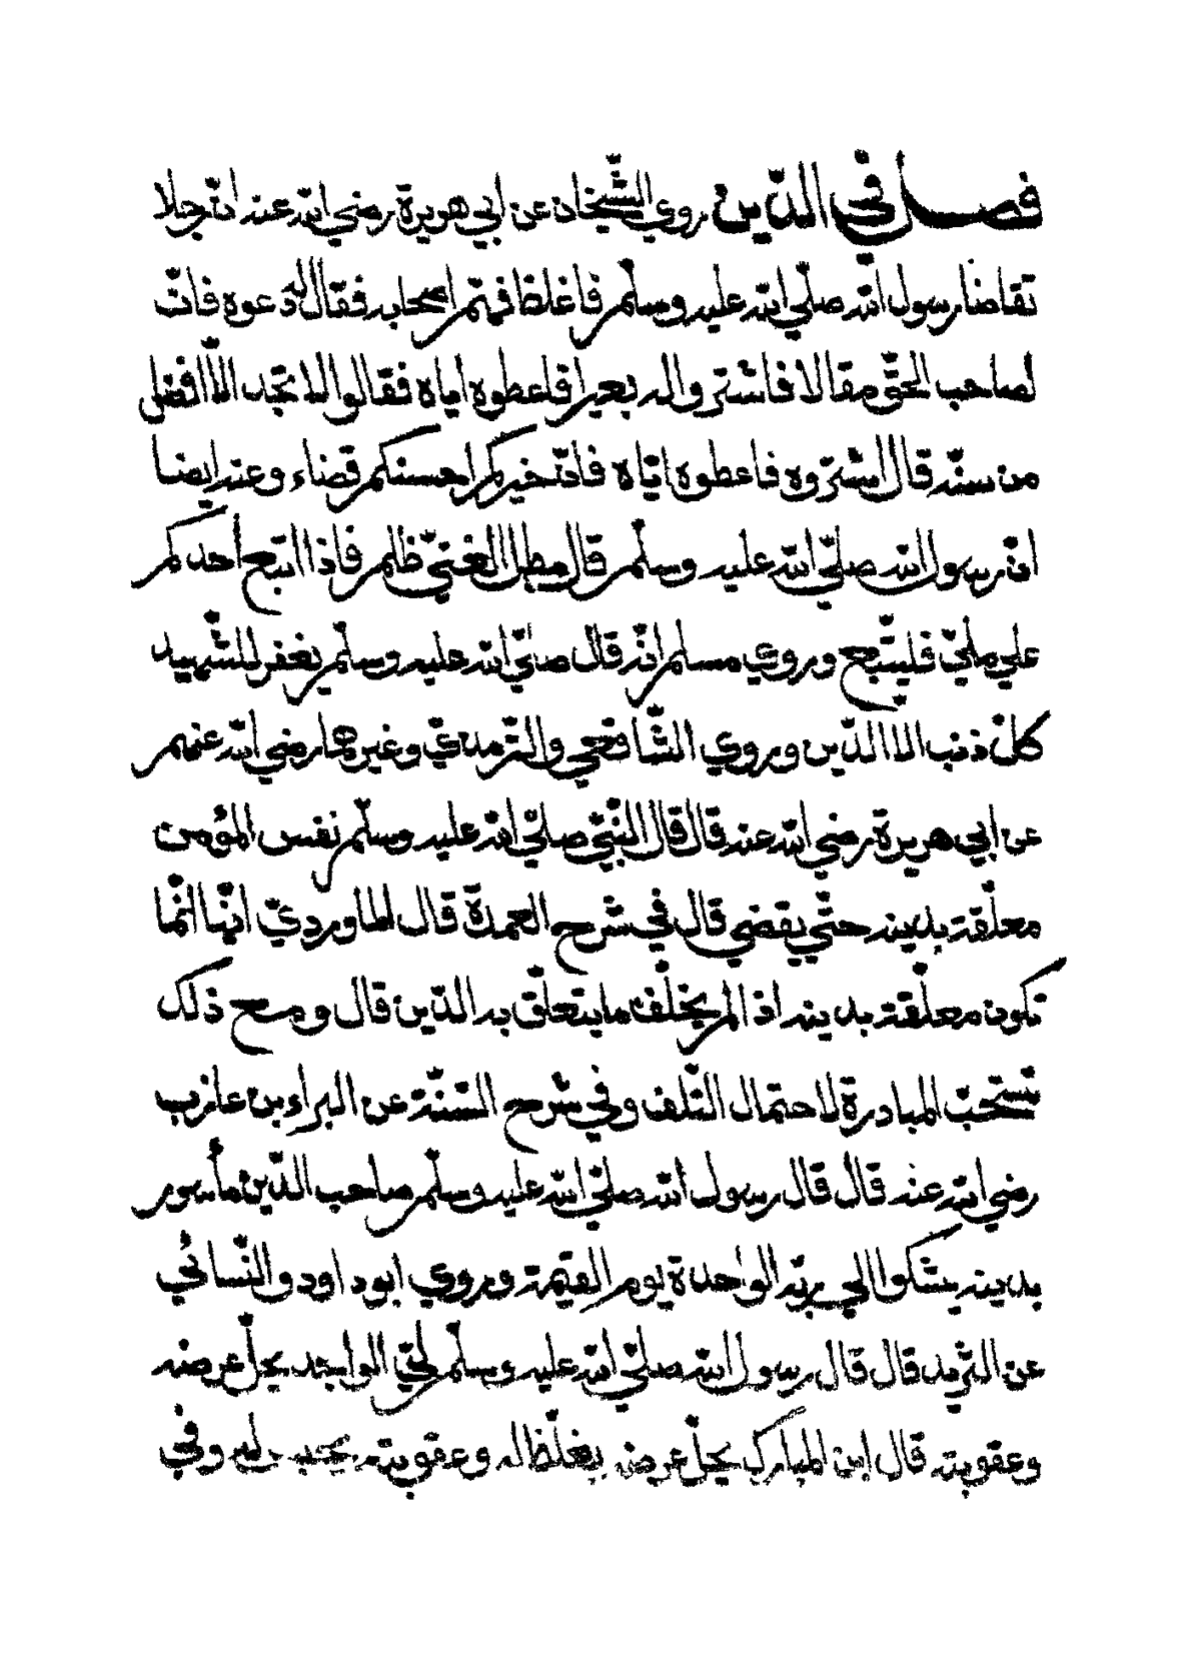 فصل في الدّين روي الشّيخان عن ابي هريرة رضي الله عنه انّ رجلا
تقاضا رسول الله صلّي الله عليه وسلّم فاغلظ فهمّ اصحابه فقال له دعوه فانّ
لصاحب الحقّ مقالا فاشتروا له بعيرا فاعطوه اياه فقالوا لا نجد الّا افضل
من سنّه قال اشتروه فاعطوه ايّاه فانّ خيركم احسنكم قضاء وعنه ايضا
انّ رسول الله صلّي الله عليه وسلّم قال مطل الغنيّ ظلم فاذا اتبع أحدكم
علي مليّ فليتّبع وروي مسلم انّه قال صلّي الله عليه وسلّم يغفر للشّهيد
كلّ ذنب الا الدّين وروي الشّافعي والتّرمذيّ وغيرهما رضي الله عنهم
عن ابي هريرة رضي الله عنه قال قال النّبيّ صلّي الله عليه وسلّم نفس المؤمن
معلّقة بدينه حتّي يقضي قال في شرح العمدة قال الماورديّ انّها انّما
تكون معلّقة بدينه اذا لم يخلّف ما يتعلّق به الدّين قال ومع ذلك
تستحبّ المبادرة لاحتمال التّلف وفي شرح السّنّة عن البراء بن عازب
رضي الله عنه قال قال رسول الله صلّي الله عليه وسلّم صاحب الدّين مأسور
بدينه يشكوا الي ربّه الواحدة يوم القيمة وروي ابوداود والنّسائي
عن الثّريد قال قال رسول الله صلّي الله عليه وسلّم ليّ الواجد يحلّ عرضه
وعقوبته قال ابن المبارك يحلّ عرضه يغلّظ له وعقوبته يحبس له وفي